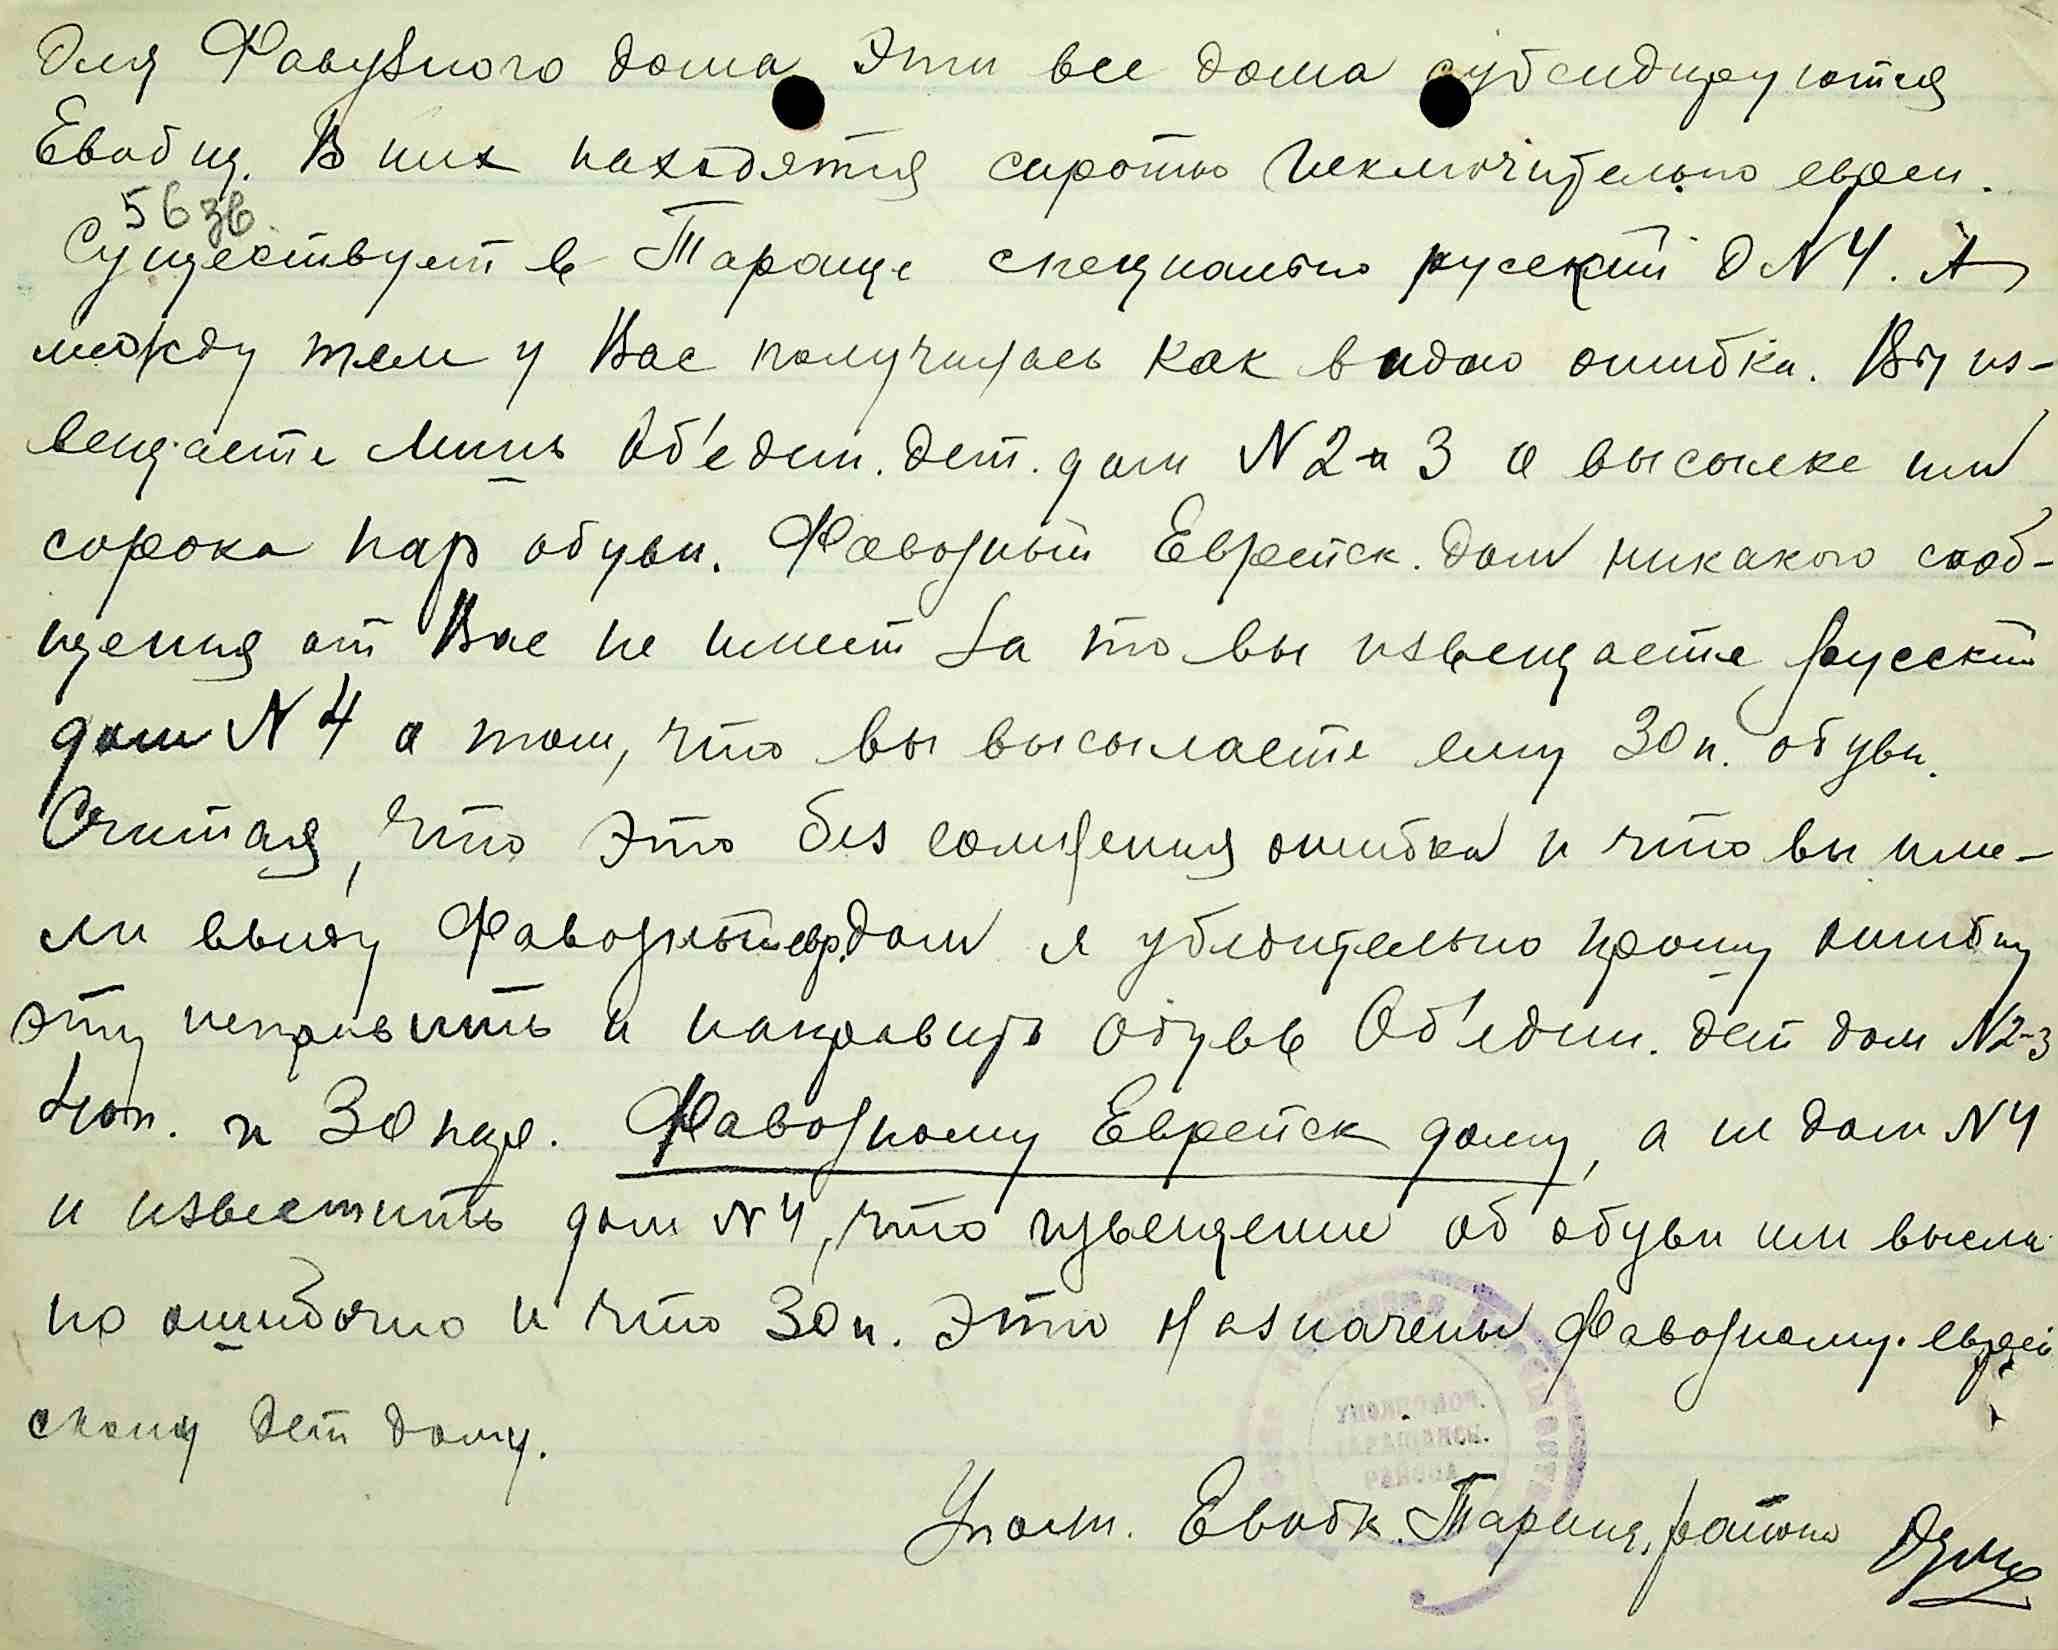 для Фавузного дома Эти все дома субсидируются
Евобщ. В них находятся сироты исключительно евреи.
5636
Существует в Тараще специально русский д N 4. А
между тем у Вас получилась как видно ошибка. Вы из-
вещаете лишь Об'един. дет. дом N 2 и 3 о высылке им
сорока пар обуви. Фавозный Еврейск. дом никакого сооб-
щения от Вас не имеет За то вы извещаете русский
дом N 4 о том, что вы высылаете ему 30 п. обуви.
Считая, что это без сомнения ошибка и что вы име-
ли ввиду Фавозный евр. дом я убедительно прошу ошибку
эту исправить и направить обувь Об'един. дет дом N 2-3
40 п. и 30 пар. Фавозному Еврейск дому, а не дом N 4
и известить дом N 4, что извещение об обуви им высла
но ошибочно и что 30 п. это назначены Фавозному. еврей
скому дет дому.
УПОЛНОМОЧ.
ТАРАЩАНСК.
РАЙОНА
Уполн. Евобк. Таращ. района